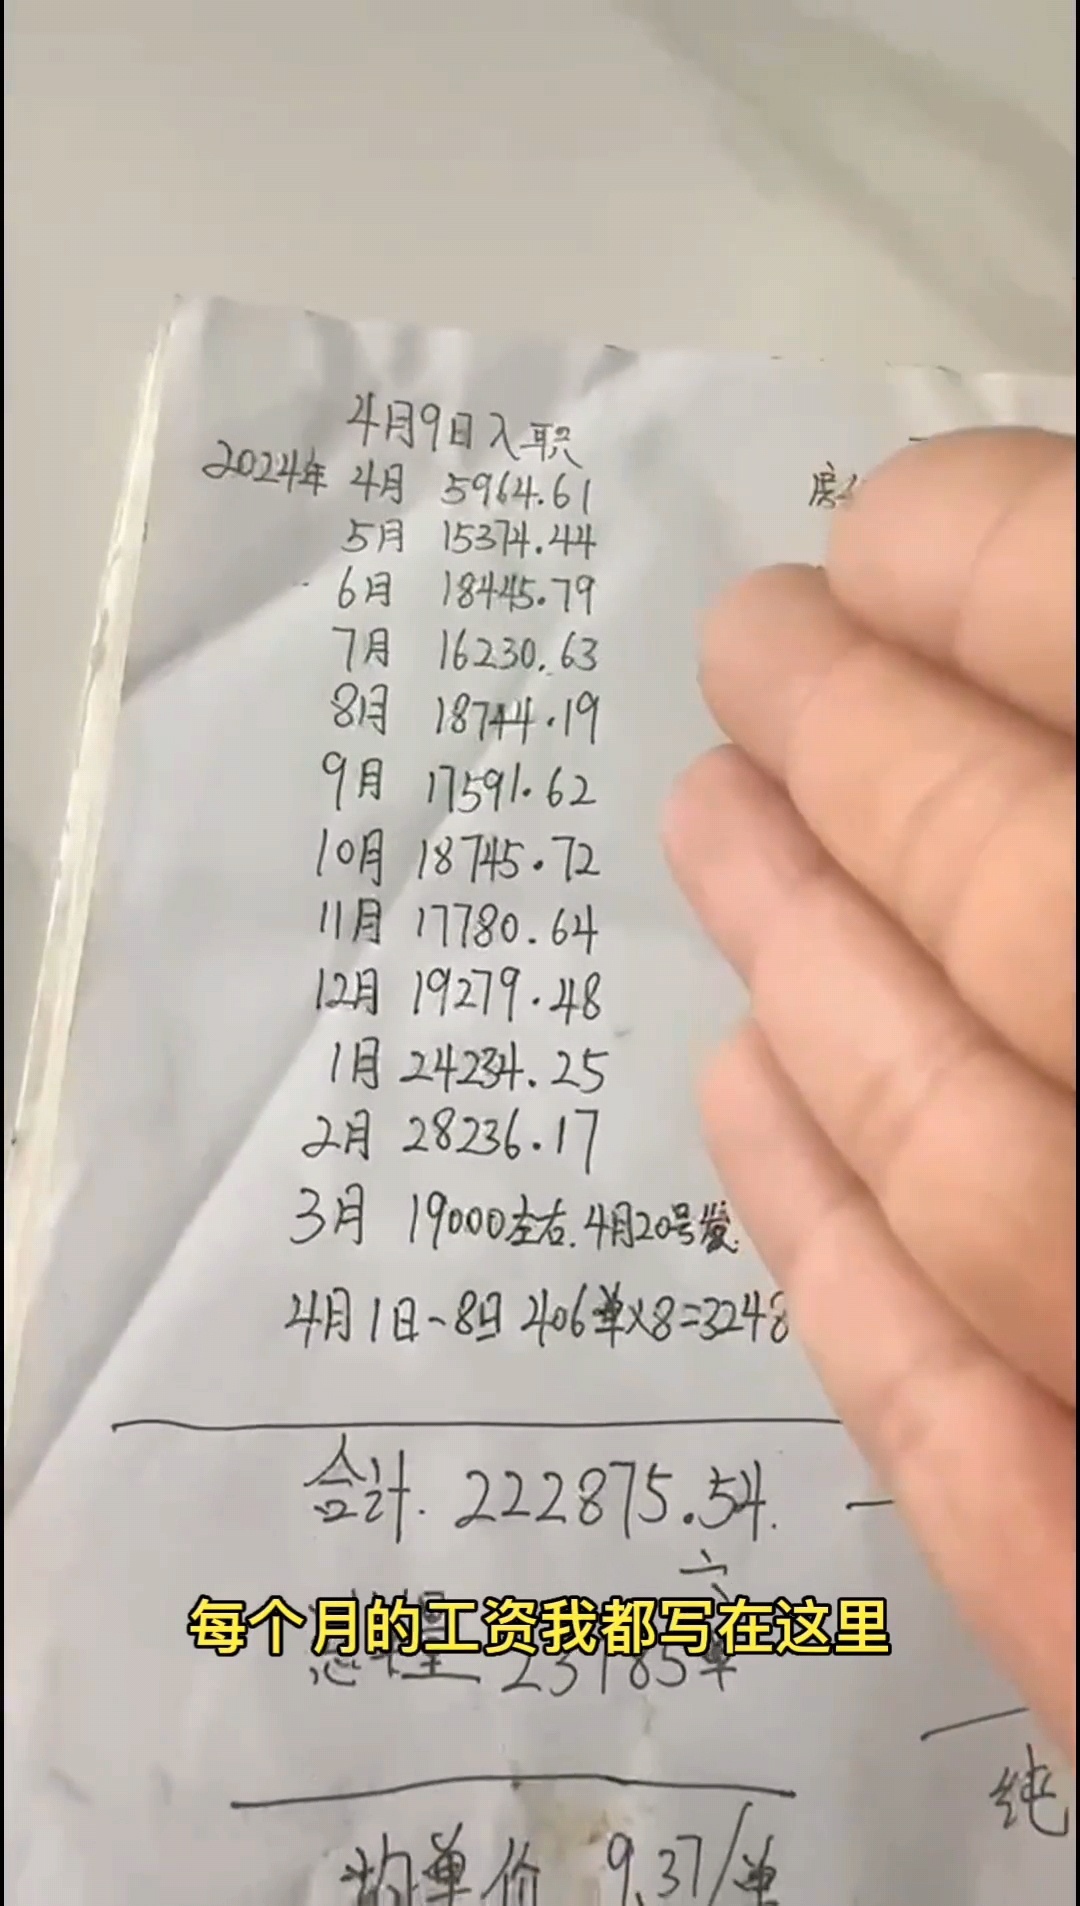 4月9日入职
2024年 4月 5964.61
5月 15374.44
6月 18445.79
7月 16230.63
8月 18744.19
9月 17591.62
10月 18745.72
11月 17780.64
12月 19279.48
1月 24234.25
2月 28236.17
3月 19000左右.4月20号发.
4月1日-8日 406单×8=3248
合计. 222875.54.
每个月的工资我都写在这里
均单价 9.37/单
纯